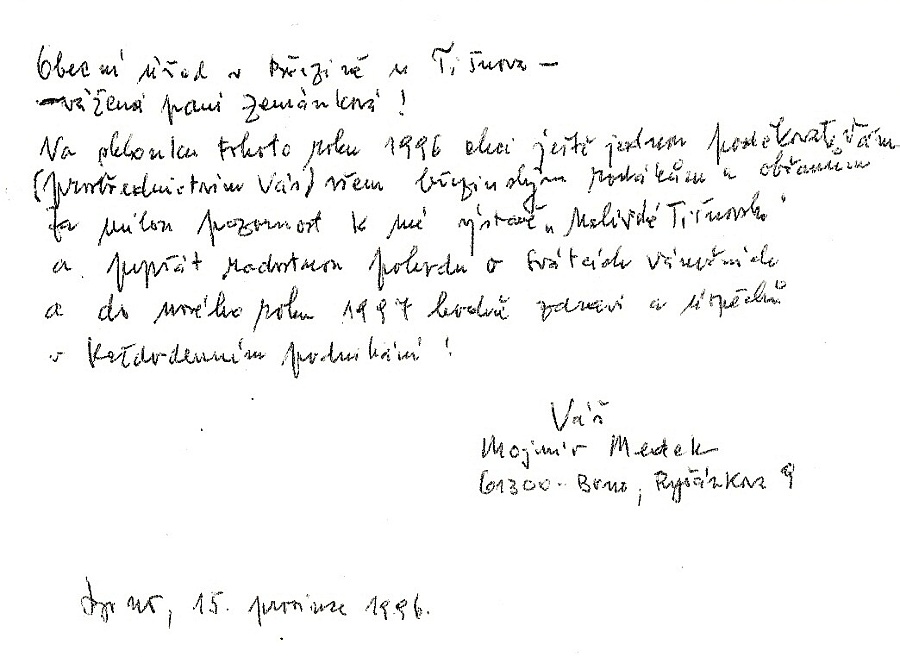 Obecní úřad v Březině u Tišnova –
– vážená paní Zemánková!
Na sklonku tohoto roku 1996 chci ještě jednou poděkovat Vám
(prostřednictvím Vás) všem březinským rodákům a občanům
za milou pozornost k mé výstavě „Malířské Tišnovsko“
a popřát radostnou pohodu o svátcích vánočních
a do nového roku 1997 hodně zdraví a úspěchů
v každodenním podnikání!
Váš
Mojmír Medek
61300 – Brno, Ryšánkova 9
Brno, 15. prosince 1996.